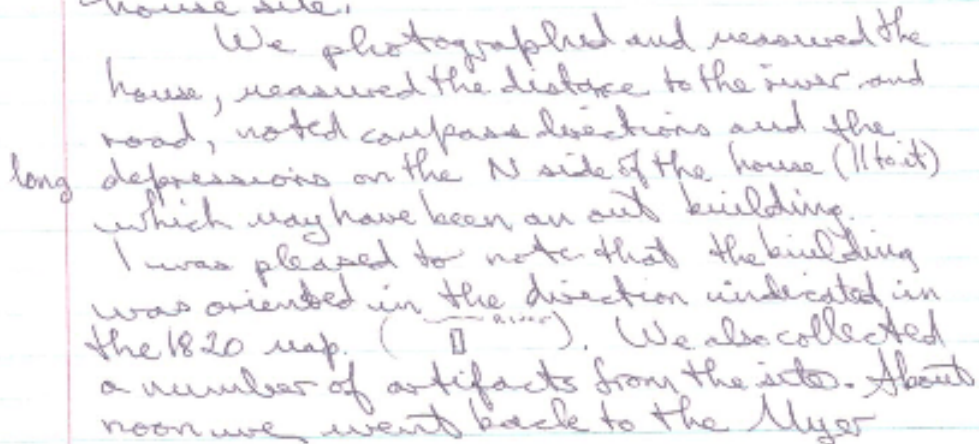 house site.
We photographed and measured the
house, measured the distance to the river and
road, noted compass directions and the
long depressions on the N side of the house (11 to it)
which may have been an out building.
I was pleased to note that the building
was oriented in the direction indicated in
the 1820 map. ( River ). We also collected
a number of artifacts from the site. About
noon we went back to the Myer